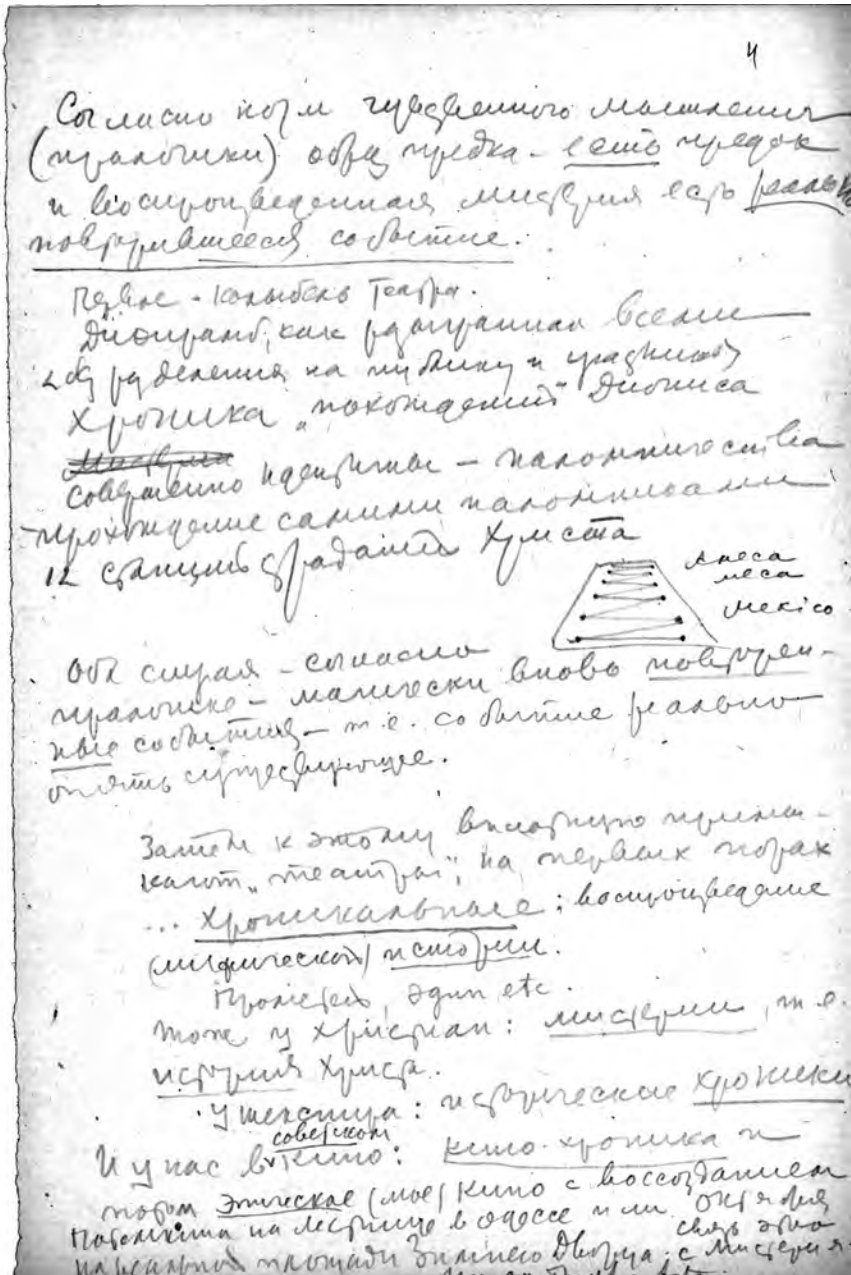 4
Согласно норм чувственного мышления
(пралогики) образ предка – есть предок
и воспроизведенная мистерия есть реально
повторившееся событие.
Первое – колыбель Театра.
Дифирамб, как разыгранная всеми
без разделения на публику и участников
хроника „похождений" Диониса
Мистерии
Совершенно идентичны – паломничества
– прохождение самими паломниками
12 станций страданий Христа
Амеса
меса
Mexico
Оба случая – согласно
пралогике – магически вновь повторен-
ные события – т.е. событие реально
опять существующее.
Затем к этому вплотную примы-
кают „театры", на первых порах
... хроникальные: воспроизведение
(мифической) истории.
Прометей, Эдип etc.
тоже у христиан: мистерии, т.е.
история Христа.
У Шекспира: исторические хроники
И у нас в советском кино: кино-хроника и
потом эпическое (мое) кино с воссозданием
Потемкина на лестнице в Одессе или Октября
на реальной площади Зимнего Дворца. связь этого с Мистерия-